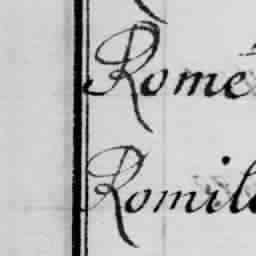 Rome
Romil